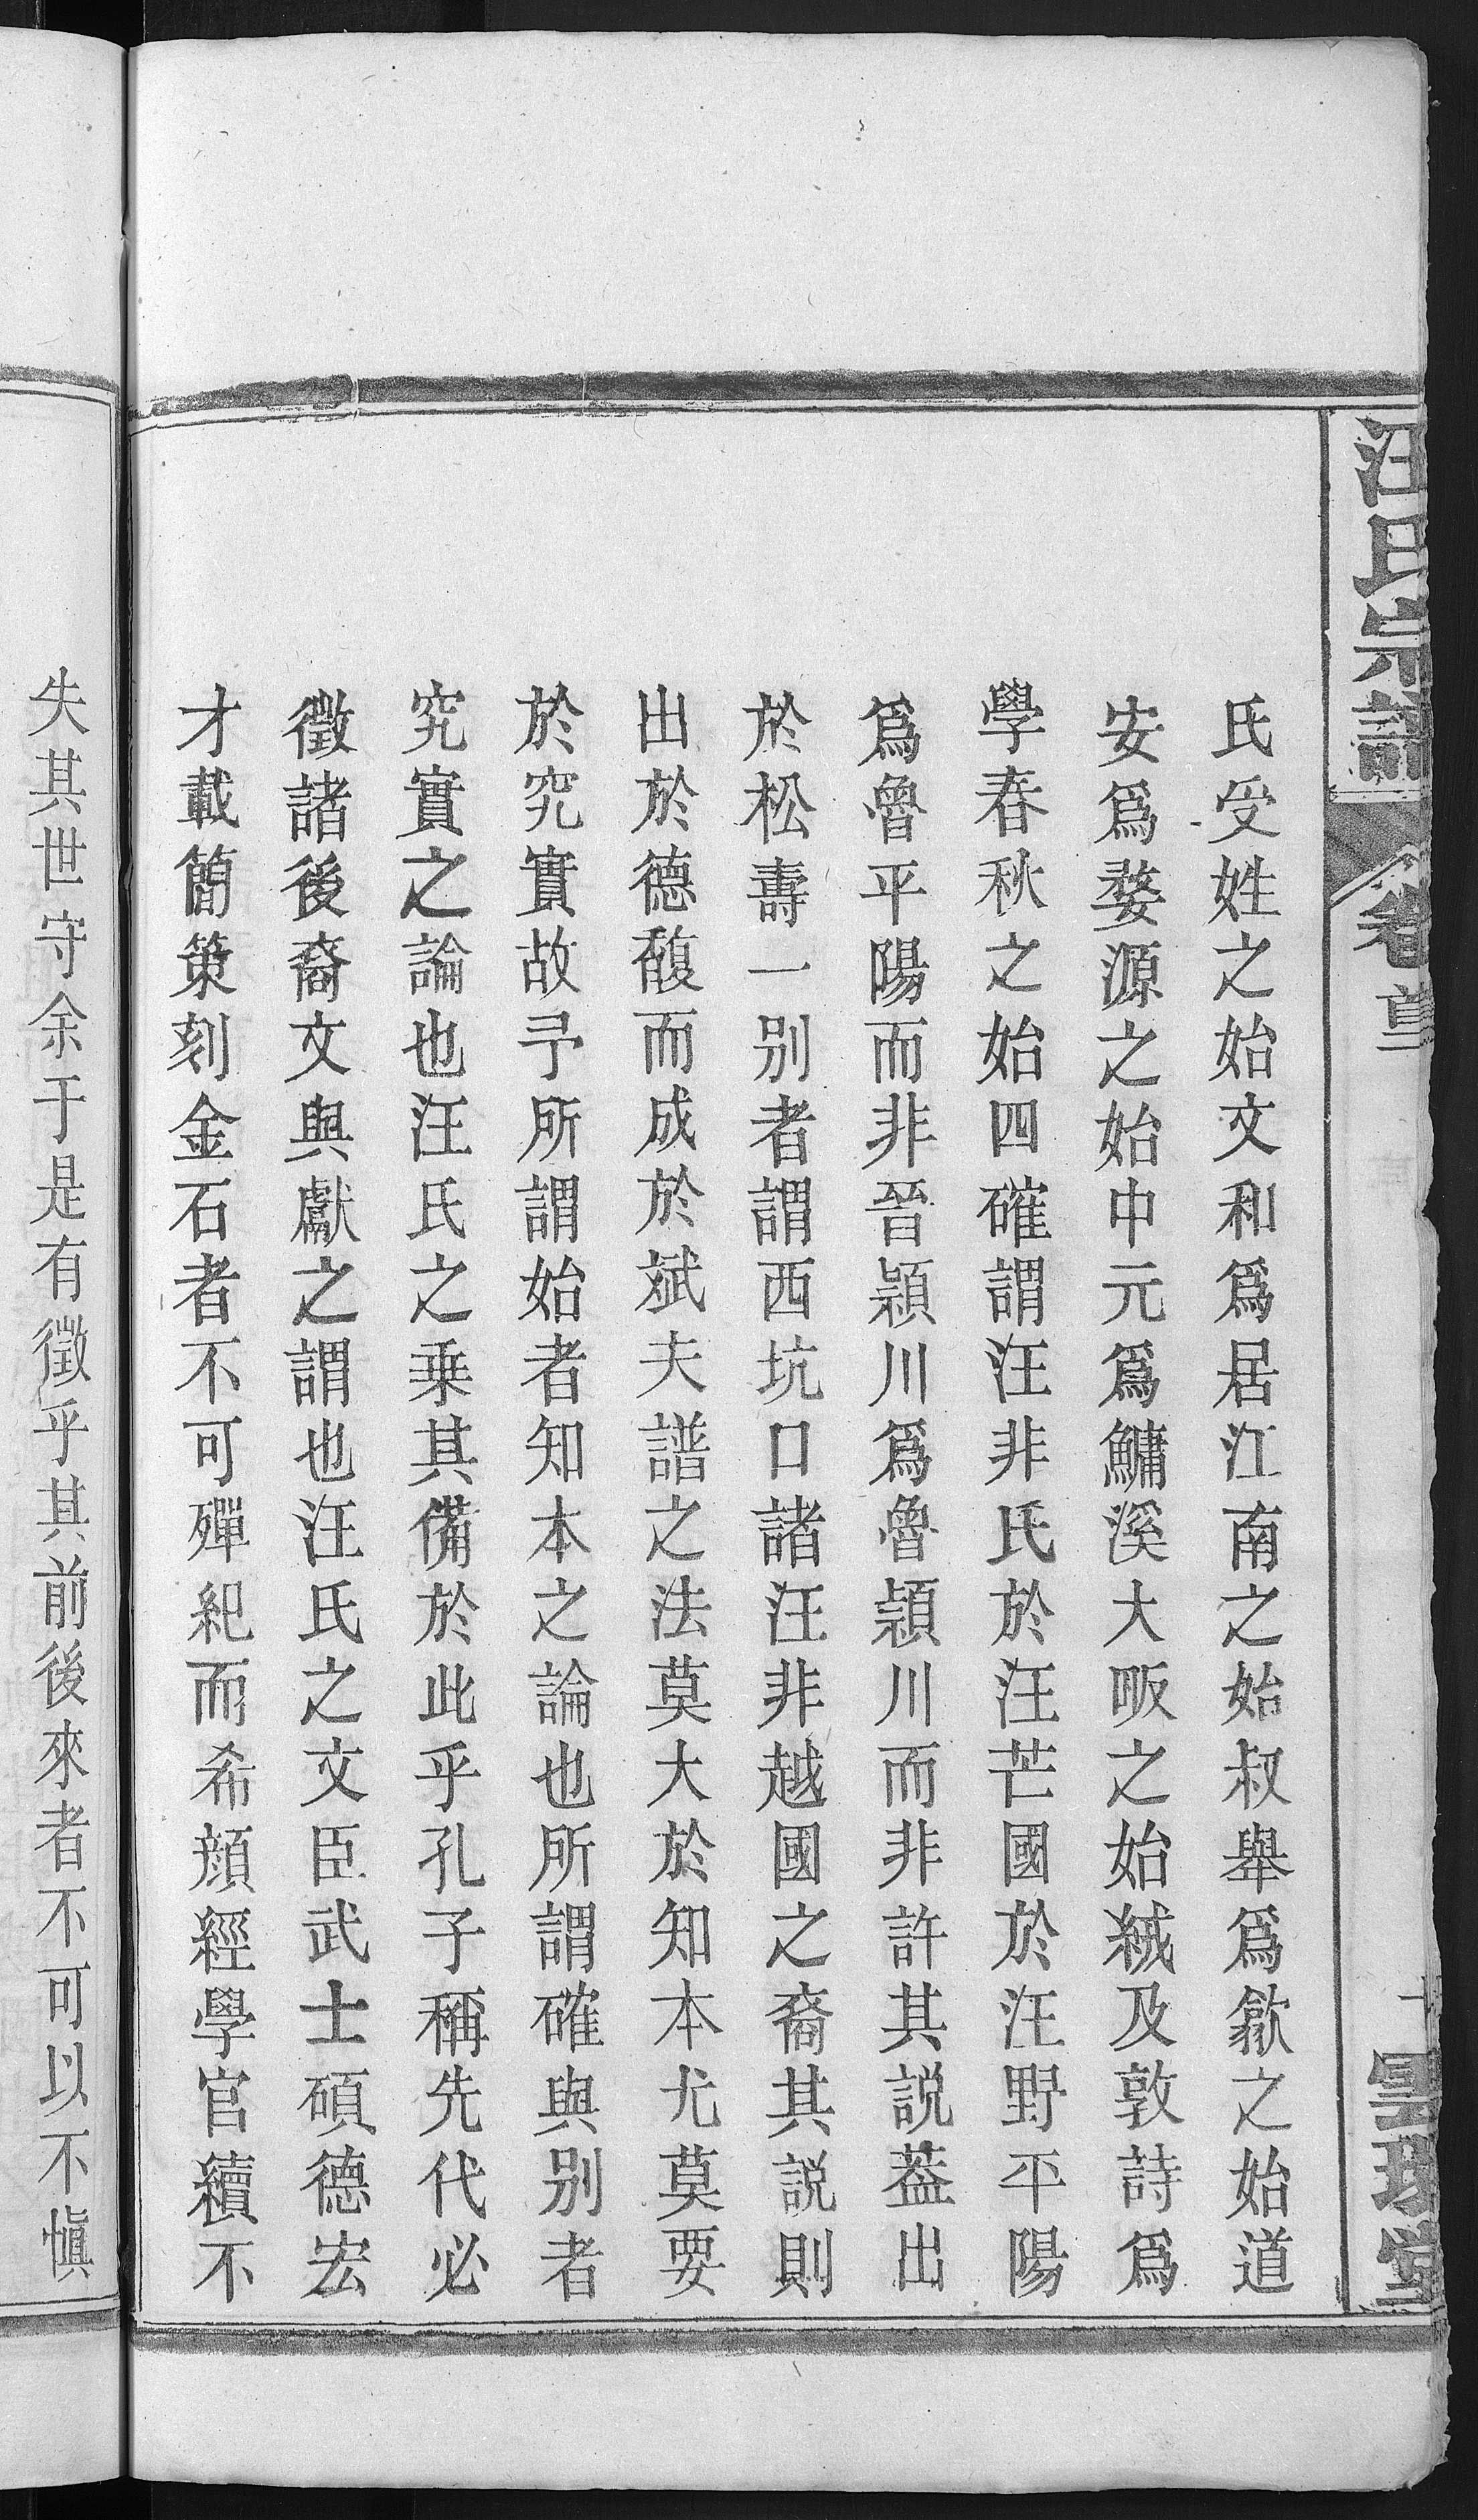 汪氏宗譜
卷首
雲環堂
氏受姓之始文和爲居江南之始叔舉爲歙之始道
安爲婺源之始中元爲鱅溪大畈之始絨及敦詩爲
學春秋之始四確謂汪非氏於汪芒國於汪野平陽
爲魯平陽而非晉潁川爲魯潁川而非許其説葢出
於松壽一别者謂西坑口諸汪非越國之裔其説則
出於德馥而成於斌夫譜之法莫大於知本尤莫要
於究實故予所謂始者知本之論也所謂確與别者
究實之論也汪氏之乗其備於此乎孔子稱先代必
徵諸後裔文與獻之謂也汪氏之文臣武士碩德宏
才載簡策刻金石者不可殫紀而希顔經學官續不
失其世守余于是有徵乎其前後來者不可以不愼